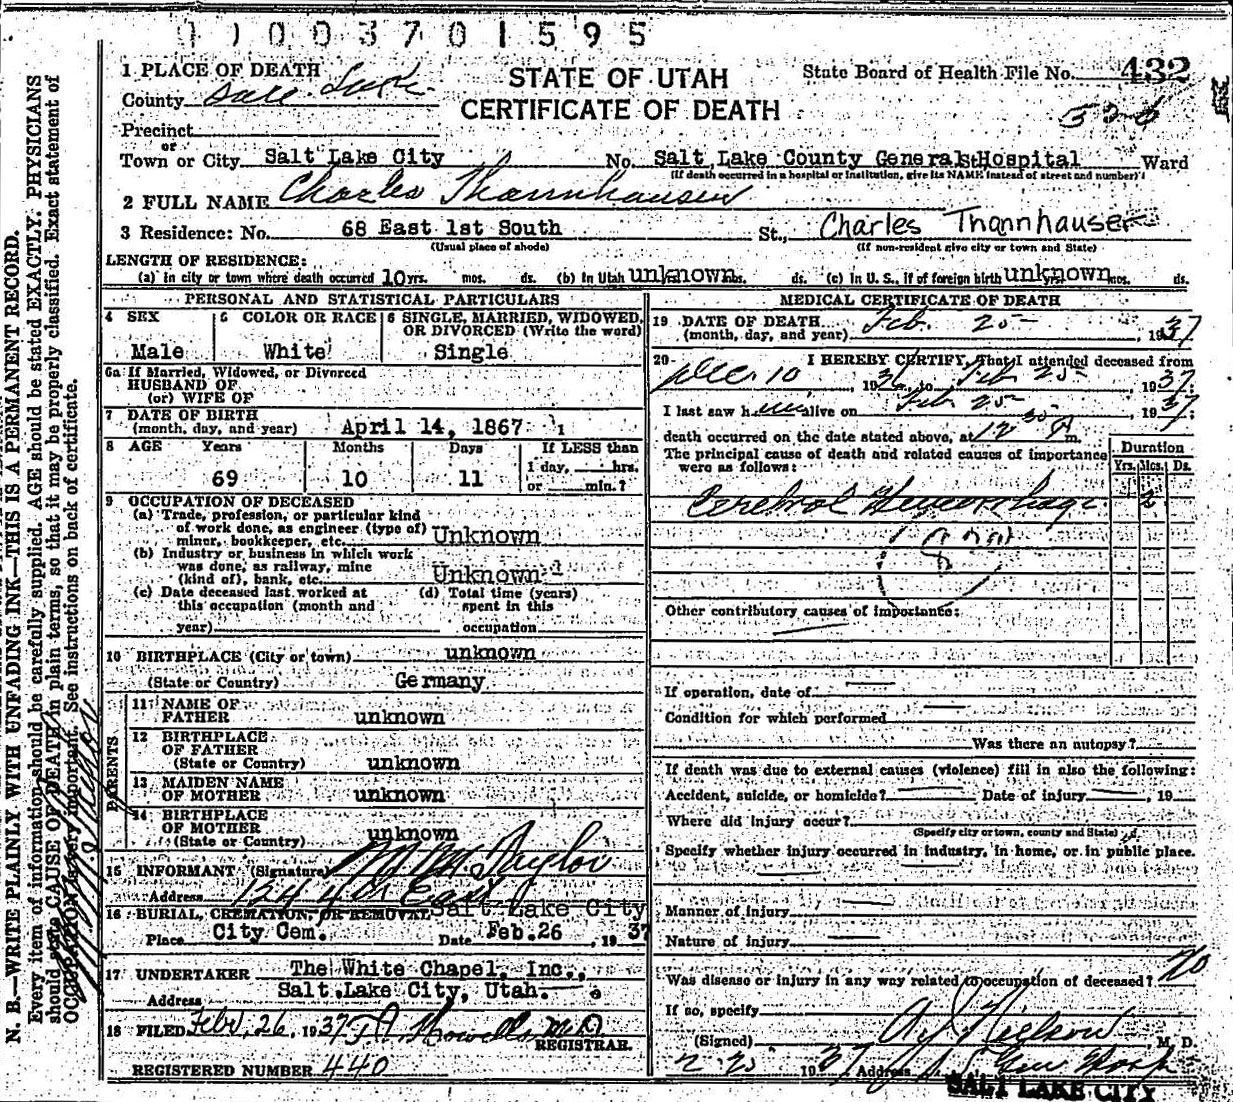 0 1 0 0 3 7 0 1 5 9 5
1 PLACE OF DEATH
STATE OF UTAH
CERTIFICATE OF DEATH
State Board of Health File No. 432
County Salt Lake
Precinct
or
Town or City Salt Lake City No. Salt Lake County General Hospital St. Ward
(If death occurred in a hospital or institution, give its NAME instead of street and number)
2 FULL NAME Charles Thannhauser
3 Residence: No. 68 East 1st South St., Charles Thannhauser
(Usual place of abode) (If non-resident give city or town and State)
LENGTH OF RESIDENCE:
(a) in city or town where death occurred 10 yrs. mos. ds. (b) In Utah unknown mos. ds. (c) In U. S. if of foreign birth yrs. unknown mos. ds.
PERSONAL AND STATISTICAL PARTICULARS
4 SEX
Male
5 COLOR OR RACE
White
6 SINGLE, MARRIED, WIDOWED, OR DIVORCED (Write the word)
Single
6a If Married, Widowed, or Divorced
HUSBAND OF
(or) WIFE OF
7 DATE OF BIRTH
(month, day, and year) April 14, 1867
8 AGE Years Months Days If LESS than
1 day, hrs.
69 10 11 or min.?
9 OCCUPATION OF DECEASED
(a) Trade, profession, or particular kind
of work done, as engineer (type of)
miner, bookkeeper, etc. Unknown
(b) Industry or business in which work
was done, as railway, mine
(kind of), bank, etc. Unknown
(c) Date deceased last worked at
this occupation (month and
year)
(d) Total time (years)
spent in this
occupation
10 BIRTHPLACE (City or town) unknown
(State or Country) Germany
PARENTS
11 NAME OF
FATHER unknown
12 BIRTHPLACE
OF FATHER
(State or Country) unknown
13 MAIDEN NAME
OF MOTHER unknown
14 BIRTHPLACE
OF MOTHER
(State or Country) unknown
15 INFORMANT (Signature) M. M. Taylor
Address 124 4th East
16 BURIAL, CREMATION, OR REMOVAL Salt Lake City
Place City Cem. Date Feb.26, 1937
17 UNDERTAKER The White Chapel, Inc.,
Address Salt Lake City, Utah.
18 FILED Febr, 26, 1937 T. A. Howells M.D
REGISTRAR.
REGISTERED NUMBER 440
MEDICAL CERTIFICATE OF DEATH
19 DATE OF DEATH
(month, day, and year) Feb. 25 1937
20 I HEREBY CERTIFY, That I attended deceased from
Dec 10, 1936, to Feb 25, 1937;
I last saw him alive on Feb 25, 1937;
death occurred on the date stated above, at 12 30 P m.
The principal cause of death and related causes of importance
were as follows:
Duration
Yrs. Mos. Ds.
Cerebral Hemorrhage 2
Other contributory causes of importance:
If operation, date of
Condition for which performed
Was there an autopsy?
If death was due to external causes (violence) fill in also the following:
Accident, suicide, or homicide? Date of injury, 19
Where did injury occur?
(Specify city or town, county and State)
Specify whether injury occurred in industry, in home, or in public place.
Manner of injury
Nature of injury
Was disease or injury in any way related to occupation of deceased? no
If so, specify
(Signed) M. D.
1937 Address
SALT LAKE CITY
N. B.—WRITE PLAINLY WITH UNFADING INK—THIS IS A PERMANENT RECORD.
Every item of information should be carefully supplied. AGE should be stated EXACTLY. PHYSICIANS
should state CAUSE OF DEATH in plain terms, so that it may be properly classified. Exact statement of
OCCUPATION is very important. See instructions on back of certificate.